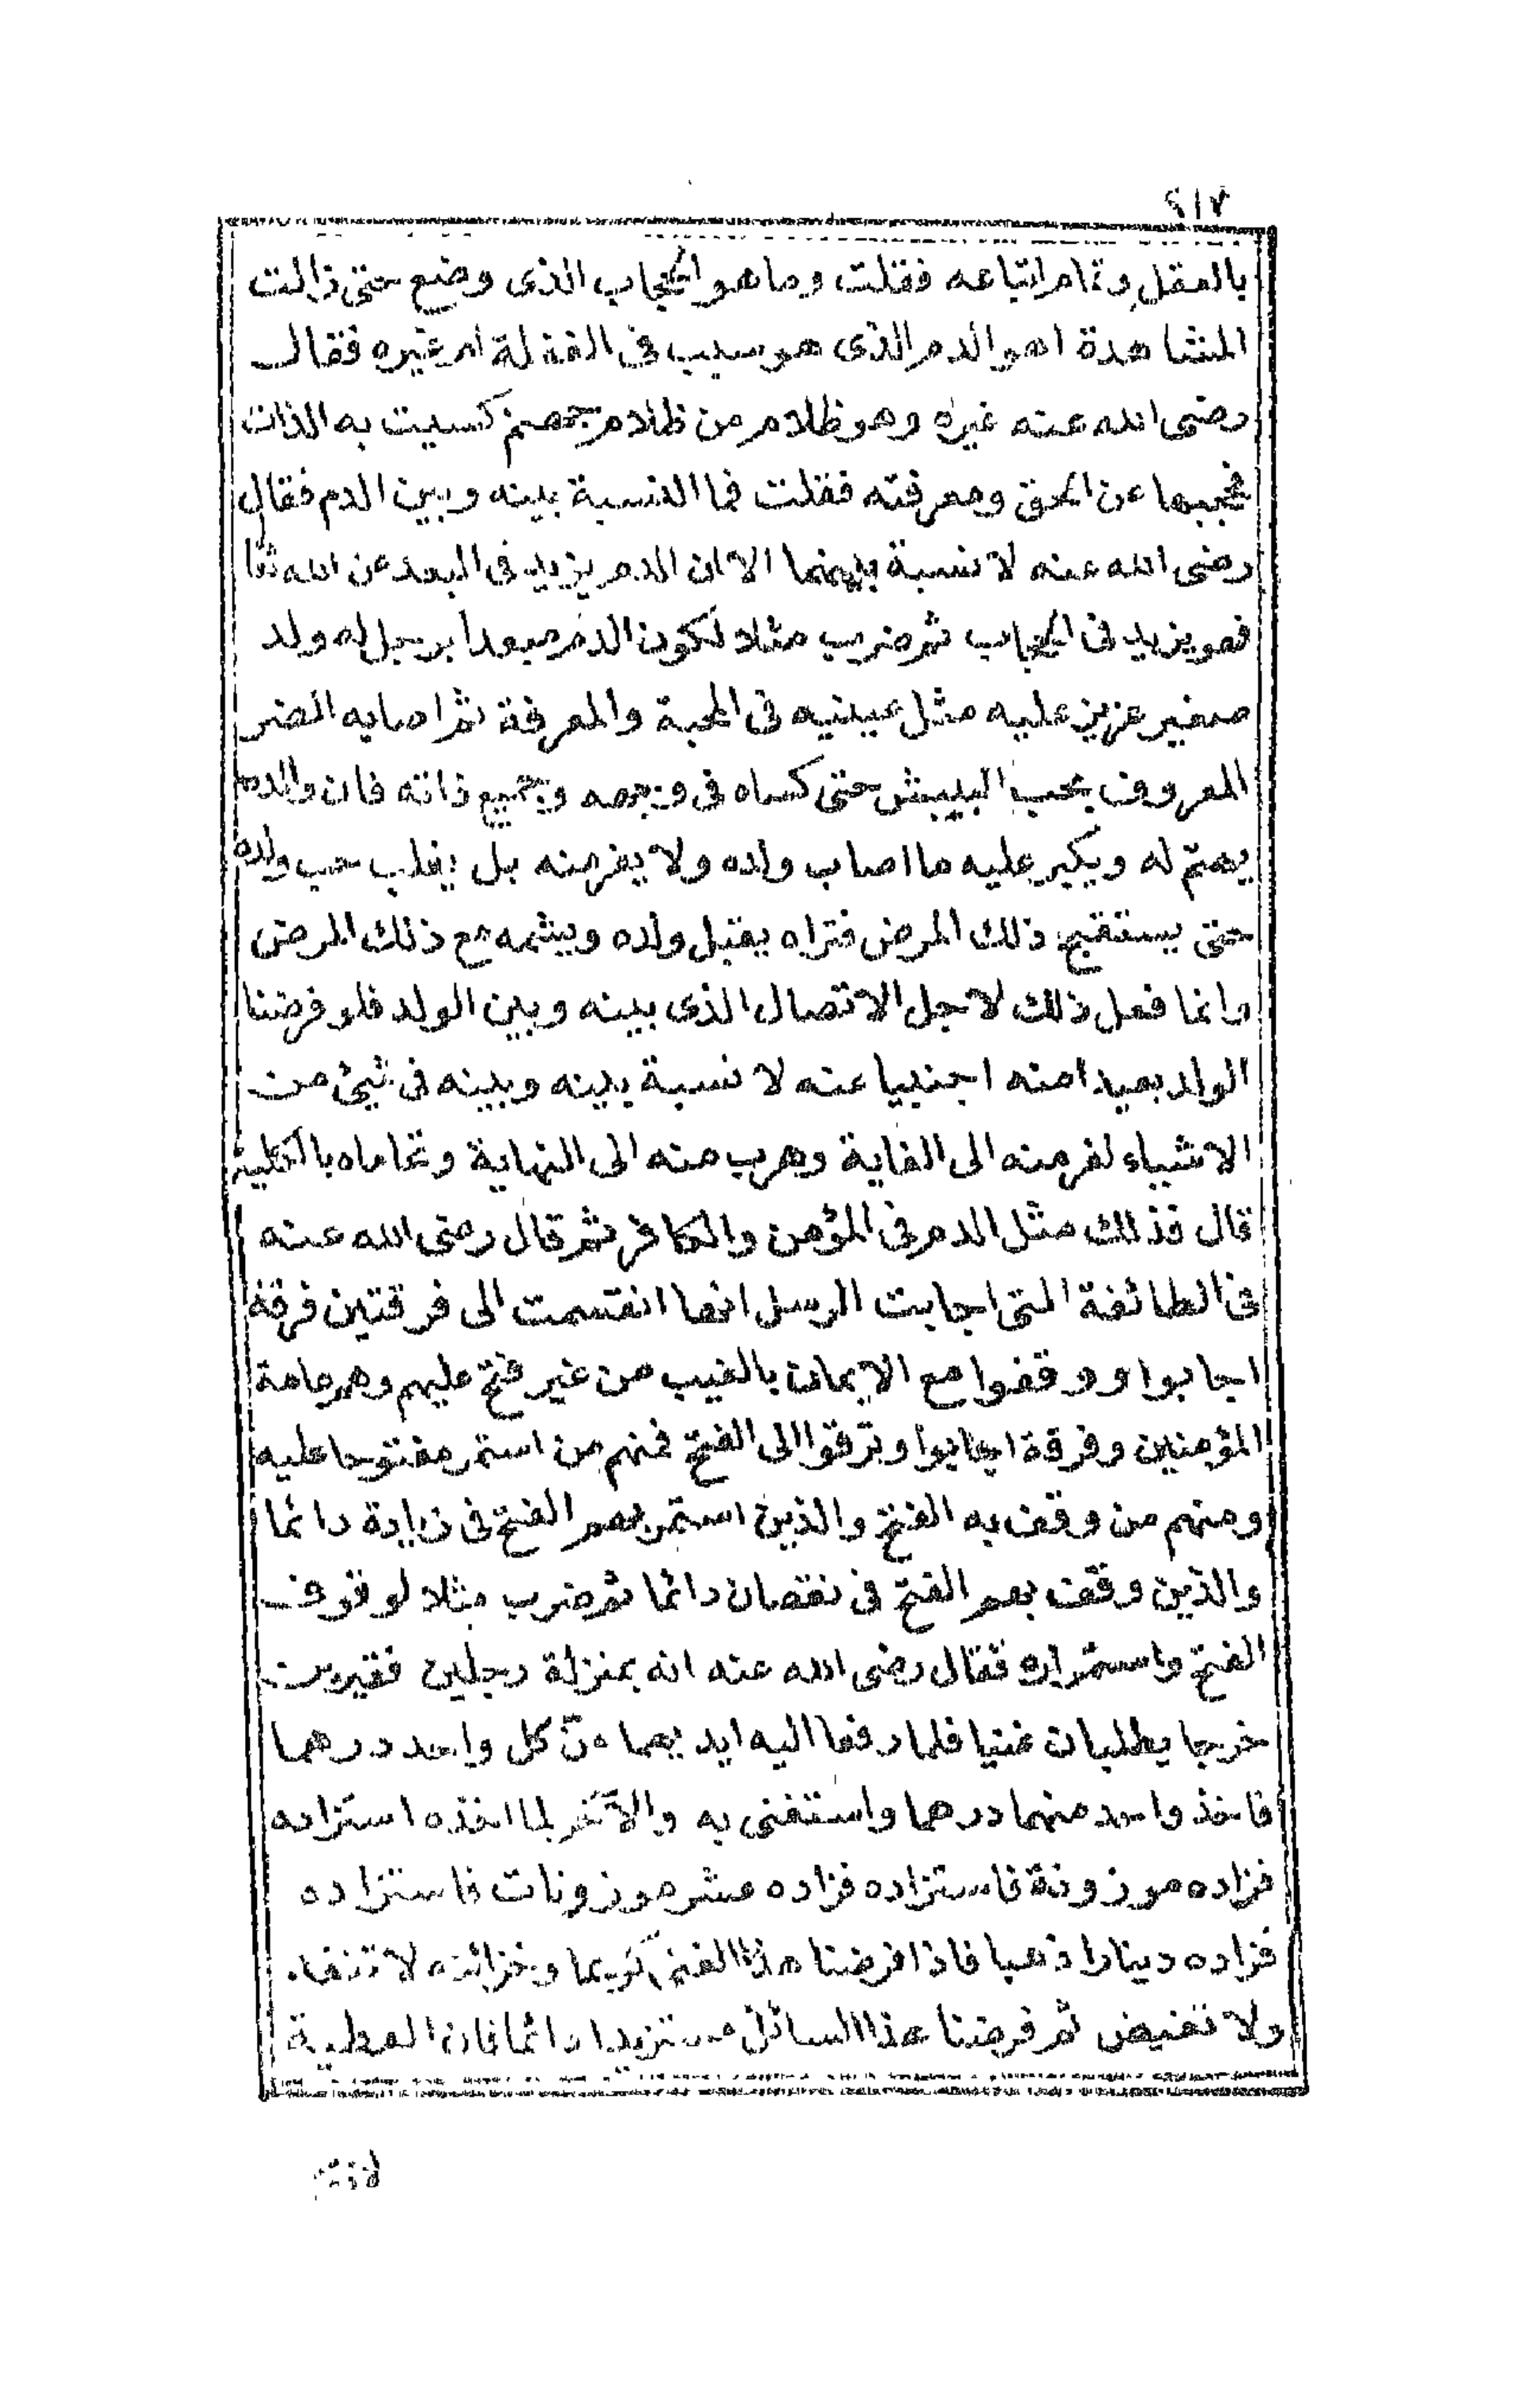 ٤١٧
بالعقل وتمام اتباعه فقلت وما هو الحجاب الذى وضع حتى زالت
المشاهدة اهو الدم الذى هو سبب فى الغفلة ام غيره فقال
رضى الله عنه غيره وهو ظلام من ظلام جهنم كسيت به الذات
فحجبها عن الحق ومعرفته فقلت فما النسبة بينه وبين الدم فقال
رضى الله عنه لا نسبة بينهما الا ان الدم يزيد فى البعد عن الله تعا
فهو يزيد فى الحجاب ثم ضرب مثلا لكون الدم مبعدا برجل له ولد
صغير عزيز عليه مثل عينيه فى المحبة والمعرفة ثم اصابه الضر
المعروف بحب البيش حتى كساه فى وجهه وجميع ذاته فان والده
يهتم له ويكبر عليه ما اصاب ولده ولا يفر منه بل يغلب حب ولده
حتى يستقبح ذلك المرض فتراه يقبل ولده ويشمه مع ذلك المرض
وانما فعل ذلك لاجل الاتصال الذى بينه وبين الولد فلو فرضنا
الولد بعيدا منه اجنبيا عنه لا نسبة بينه وبينه فى شئ من
الاشياء لفر منه الى الغاية وهرب منه الى النهاية وتحاماه بالكلية
قال فذلك مثل الدم فى المؤمن والكافر ثم قال رضى الله عنه
فى الطائفة التى اجابت الرسل انها انقسمت الى فرقتين فرقة
اجابوا ووقفوا مع الايمان بالغيب من غير فتح عليهم وهم عامة
المؤمنين وفرقة اجابوا وترقوا الى الفتح فمنهم من استمر مفتوحا عليه
ومنهم من وقف به الفتح والذين استمر بهم الفتح فى زيادة دائما
والذين وقف بهم الفتح فى نقصان دائما ثم ضرب مثلا لوقوف
الفتح واستمراره فقال رضى الله عنه انه بمنزلة رجلين فقيرين
خرجا يطلبان غنيا فلما رفعا اليه ايديهما مدّ كل واحد درهما
فاخذ واحد منهما درهما واستغنى به والآخر لما اخذه استزاده
فزاده موزونة فاستزاده فزاده عشر موزونات فاستزاده
فزاده دينارا ذهبا فاذا فرضنا هذا الغنى كريما وخزائنه لا تنفد
ولا تغيض ثم فرضنا هذا السائل مستزيدا دائما فان العطية